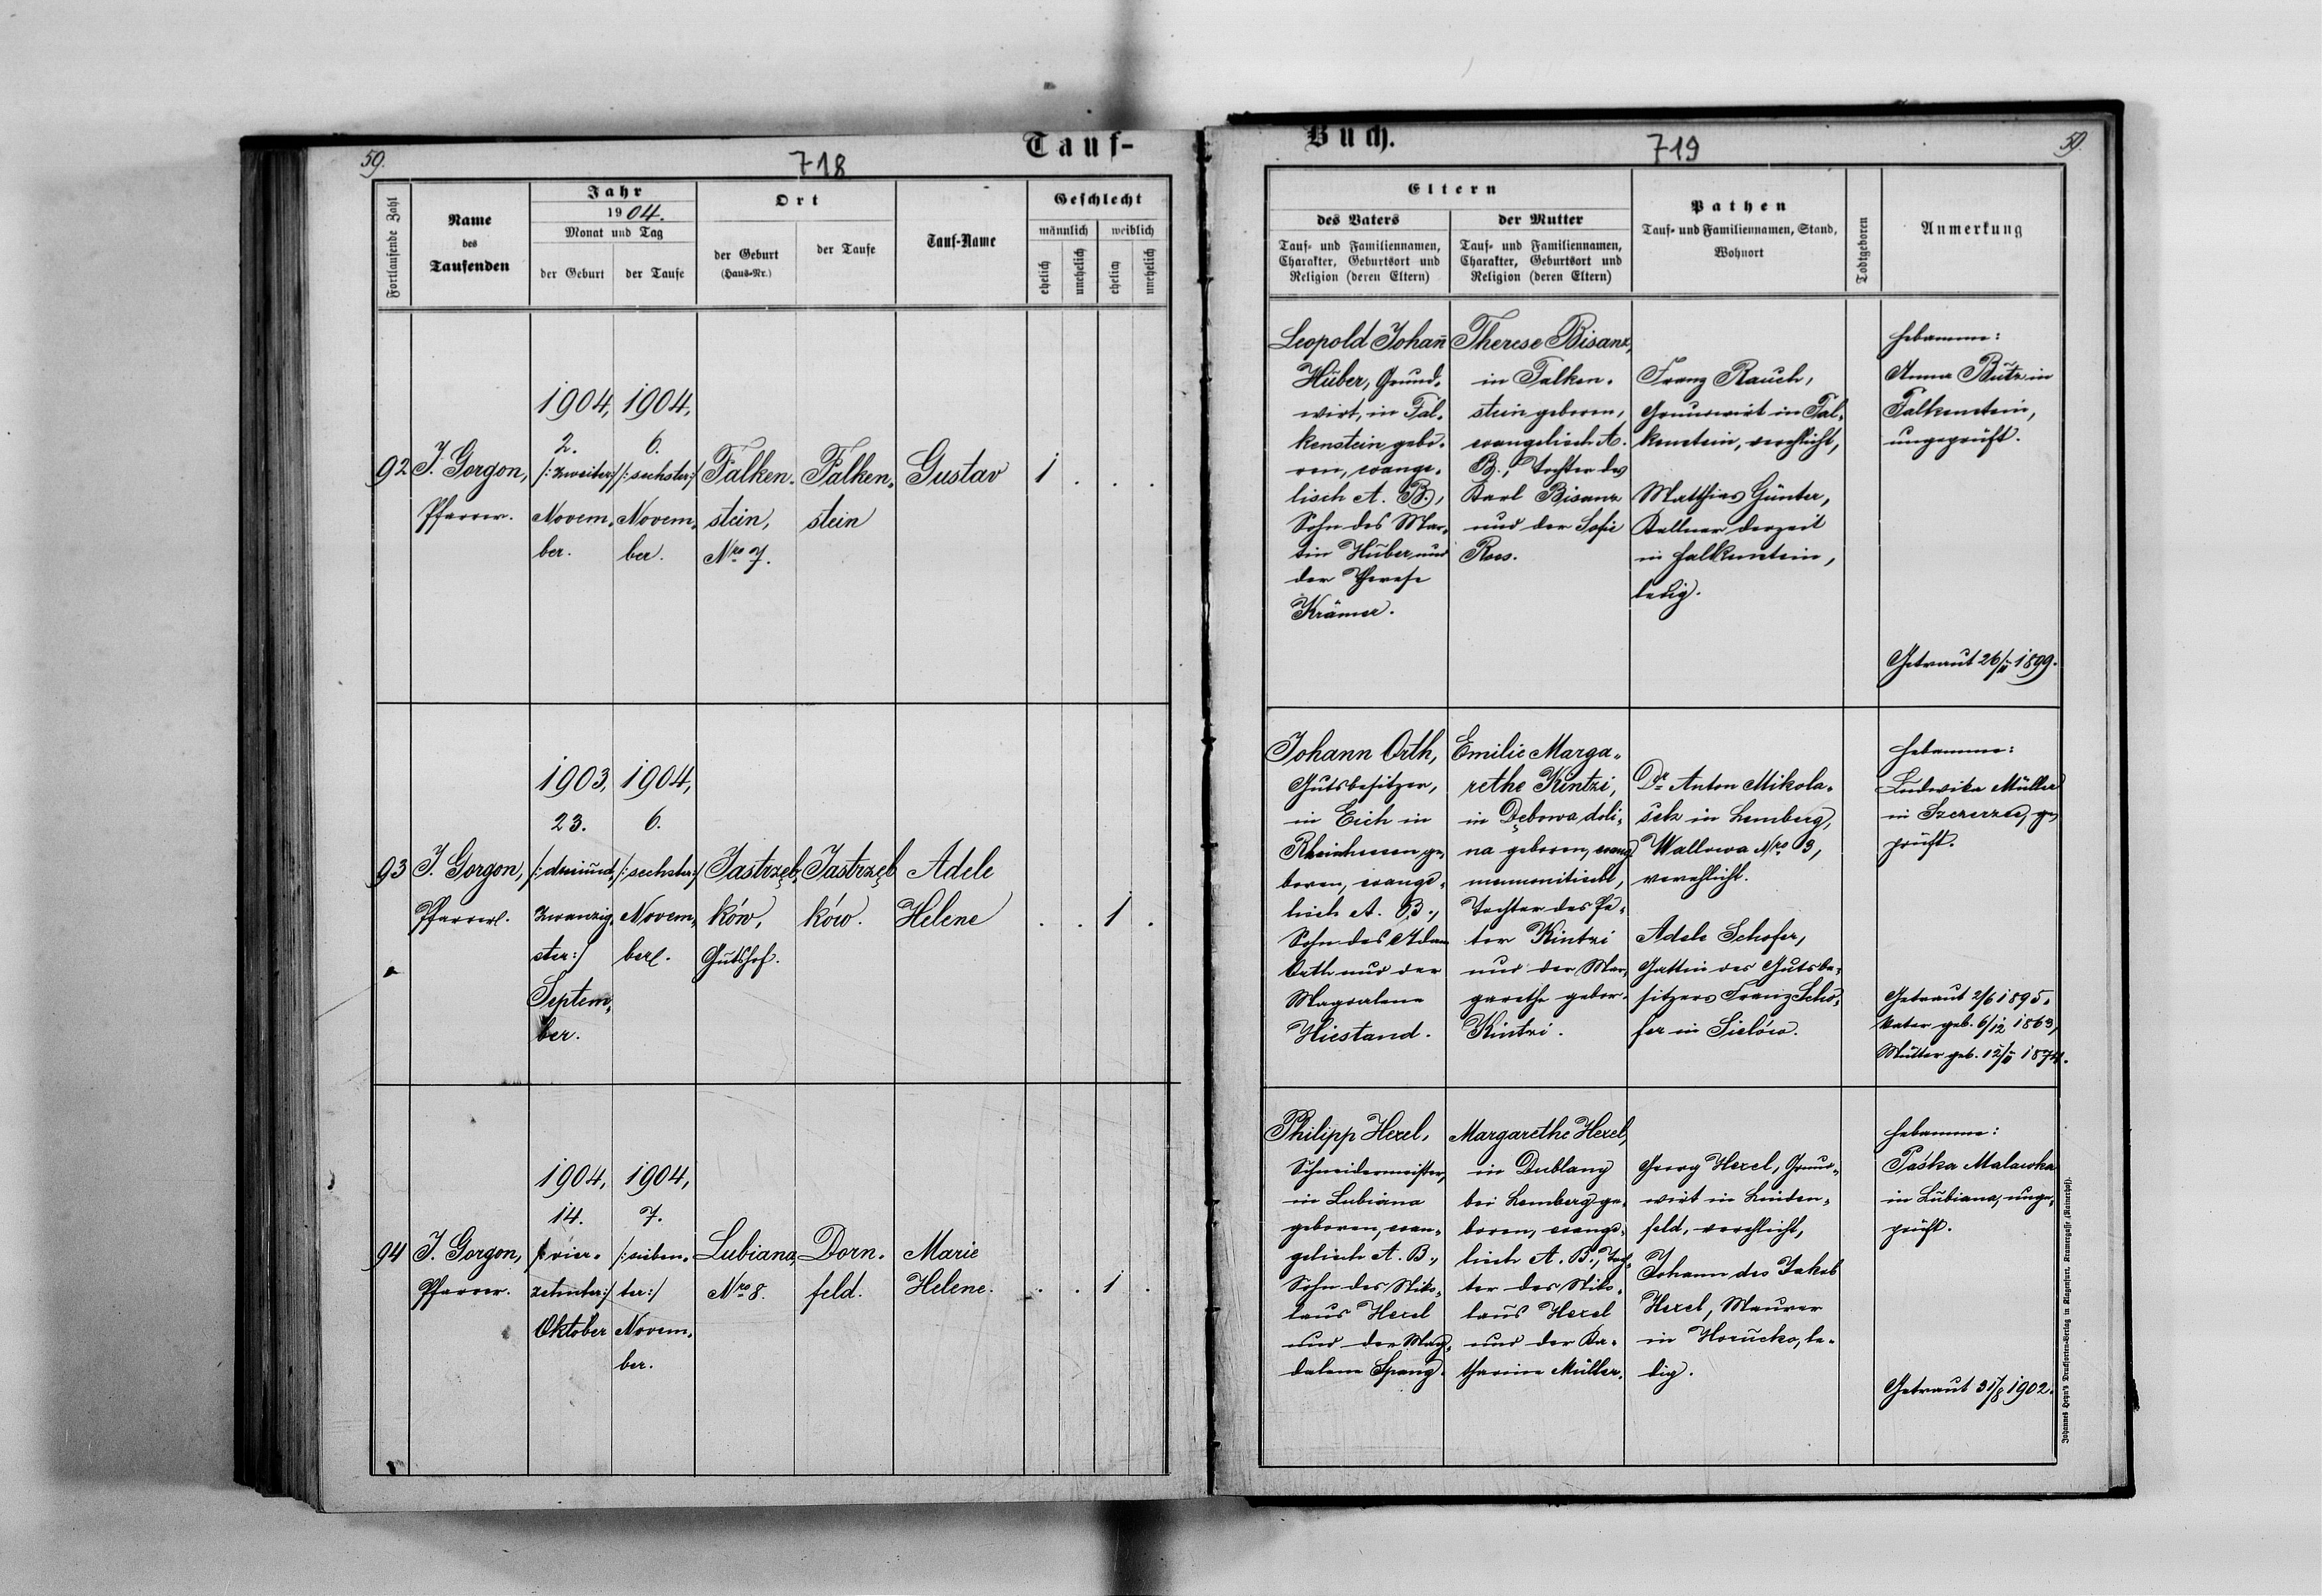 59.
718
Tauf-
Fortlaufende Zahl
Name
des
Taufenden
Jahr
1904.
Monat und Tag
der Geburt
der Taufe
Ort
der Geburt
(Haus-Nr.)
der Taufe
Tauf-Name
Geschlecht
männlich
weiblich
ehelich
unehelich
ehelich
unehelich
92
J. Gorgon,
Pfarrer.
1904,
2.
/:zweiter:/
Novem-
ber.
1904,
6.
/:sechster:/
Novem-
ber.
Falken-
stein,
Nro 7.
Falken-
stein
Gustav
1 . . .
93
J. Gorgon,
Pfarrer.
1903,
23.
/:dreiund-
zwanzig-
ster:/
Septem-
ber.
1904,
6.
/:sechster:/
Novem-
ber.
Jastrzęb-
ków,
Gutshof.
Jastrzęb
ków.
Adele
Helene
. . 1 .
94
J. Gorgon,
Pfarrer.
1904,
14.
/:vier-
zehnter:/
Oktober
1904,
7.
/:sieben-
ter:/
Novem-
ber.
Lubiana,
Nro 8.
Dorn-
feld.
Marie
Helene.
. . 1 .
Buch.
719
59.
Eltern
des Vaters
Tauf- und Familiennamen,
Charakter, Geburtsort und
Religion (deren Eltern)
der Mutter
Tauf- und Familiennamen,
Charakter, Geburtsort und
Religion (deren Eltern)
Pathen
Tauf- und Familiennamen, Stand,
Wohnort
Todtgeboren
Anmerkung
Leopold Johann̄
Huber, Grund-
wirt, in Fal-
kenstein gebo-
ren, evange-
lisch A. B.,
Sohn des Mar-
tin Huber und
der Therese
Krämer.
Therese Bisanz,
in Falken-
stein geboren,
evangelisch A.
B., Tochter des
Karl Bisanz
und der Sofie
Roos.
Franz Rauch,
Grundwirt in Fal-
kenstein, verehlicht,
Matthias Günter,
Kellner derzeit
in Falkenstein,
ledig.
Hebamme:
Anna Butz in
Falkenstein,
ungeprüft.
Getraut 26/ 1899.
Johann Orth,
Gutsbesitzer,
in Eich in
Rheinhessen ge-
boren, evange-
lisch A. B.,
Sohn des Adam
Orth und der
Magdalena
Hiestand.
Emilie Marga-
rethe Kintzi,
in Dębowa doli-
na geboren, evang
mennonitisch,
Tochter des Pe-
ter Kintzi
und der Mar-
garethe gebor.
Kintzi.
Dr Anton Mikola-
sch in Lemberg,
Wallowa Nro 3,
verehlicht.
Adele Schofer,
Gattin des Gutsbe-
sitzers Franz Scho-
fer in Sielów.
Hebamme:
Ludwika Müller
in Szczerzec, ge-
prüft.
Getraut 2/6 1895.
Vater geb. 6/12 1863,
Mutter geb. 12/ 1874.
Philipp Hexel,
Schneidermeister,
in Lubiana
geboren, evan-
gelisch A. B.,
Sohn des Niko-
laus Hexel
und der Mag-
dalena Spang.
Margarethe Hexel,
in Dublany
bei Lemberg ge-
boren, evange-
lisch A. B., Toch-
ter des Niko-
laus Hexel
und der Ka-
tharina Müller.
Georg Hexel, Grund-
wirt in Linden-
feld, verehlicht,
Johann des Jakob
Hexel, Maurer
in Horucko, le-
dig.
Hebamme:
Paśka Malawka
in Lubiana, unge-
prüft.
Getraut 31/8 1902.
Johannes Heyn's Drucksorten-Verlag in Klagenfurt, Kramergasse (Rainerhof).